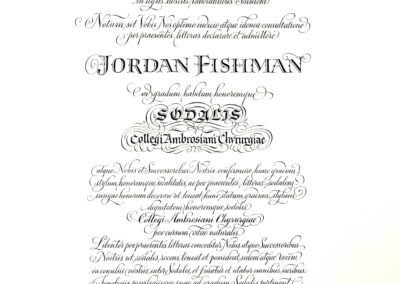 in legibus nostris laborantibus Salutem
Notum sit Vobis Nos optimo iudicio atque idonea consultatione
per praesentes litteras declarare et admittere
JORDAN FISHMAN
ad gradum habitum honoremque
SODALIS
Collegi Ambrosiani Chyrurgiae
atque Nobis et Successoribus Nostris confirmare hunc gracum
stylum, honoremque sodalitatis, ac per praesentes litteras, sodalem
inque honorandum decorare ut teneat, hunc statum, gracum, stylum
dignitatem honoremque sodalis
Collegi Ambrosiani Chyrurgiae
per cursum vitae naturalis
Libenter per praesentes litteras conceditur Nobis atque Successoribus
Nostris ut sodales, socens, teneat et possident, sedem atque Vocem
in consiliis nostris inter Sodales, et fruatur et utatur omnibus iuribus
privilegiisque quae ad gradum Sodalis pertinent